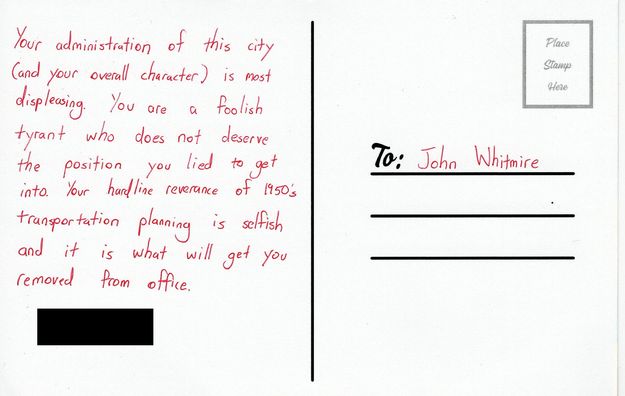 Your administration of this city
(and your overall character) is most
displeasing. You are a foolish
tyrant who does not deserve
the position you lied to get
into. Your hardline reverance of 1950's
transportation planning is selfish
and it is what will get you
removed from office.
Place
Stamp
Here
To: John Whitmire